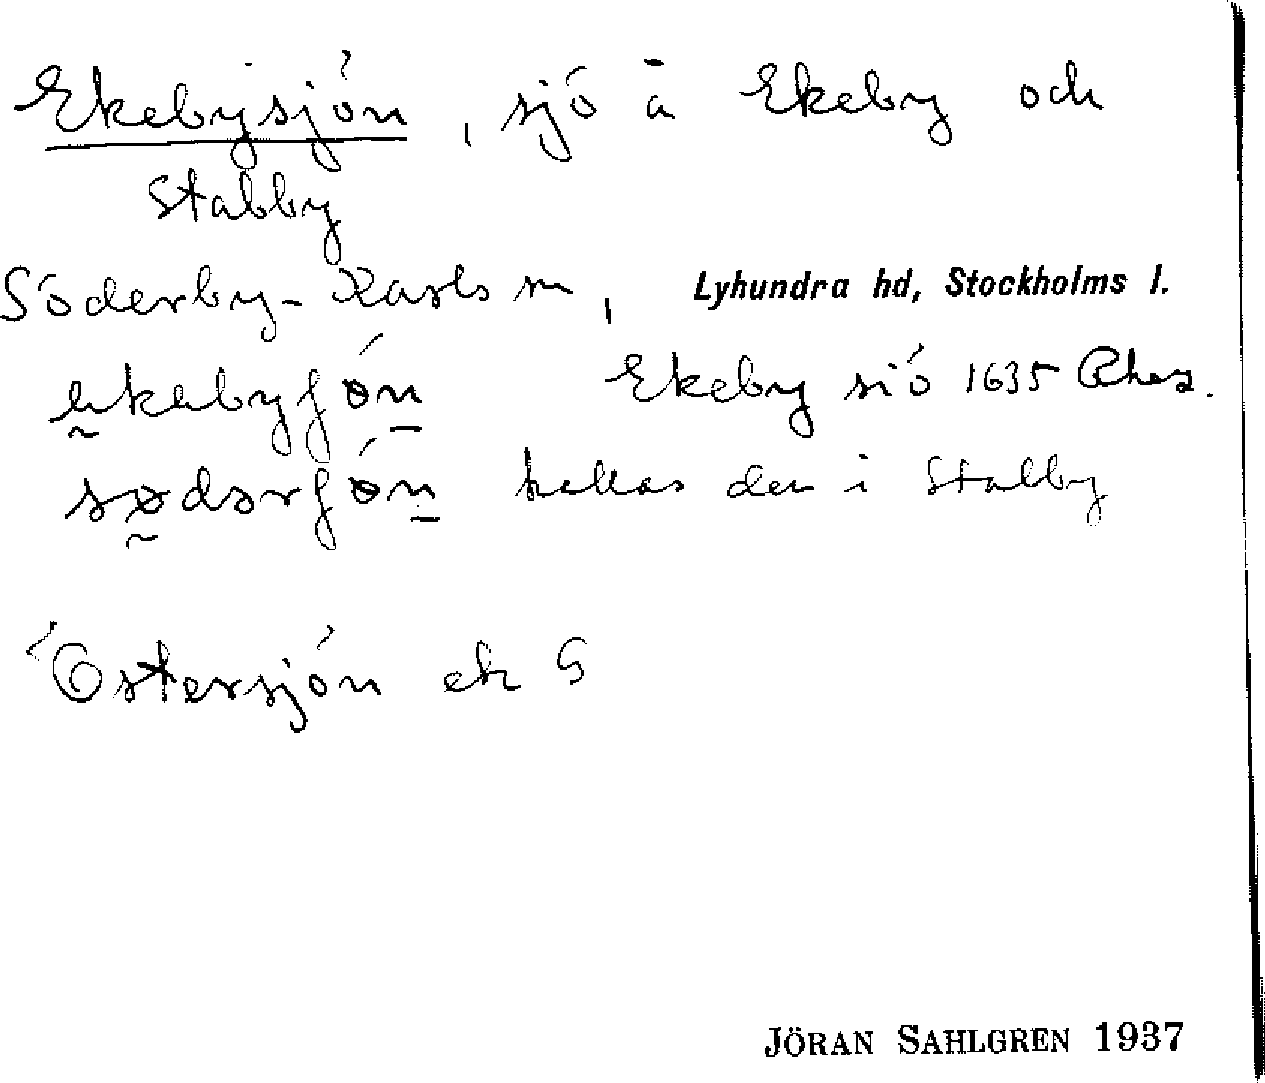 Ekebysjön, sjö å Ekeby och
Stabby
Söderby-Karls sn, Lyhundra hd, Stockholms l.
Ekeby siö 1635
kallas den i Stabby
Östersjön ek G
JÖRAN SAHLGREN 1937